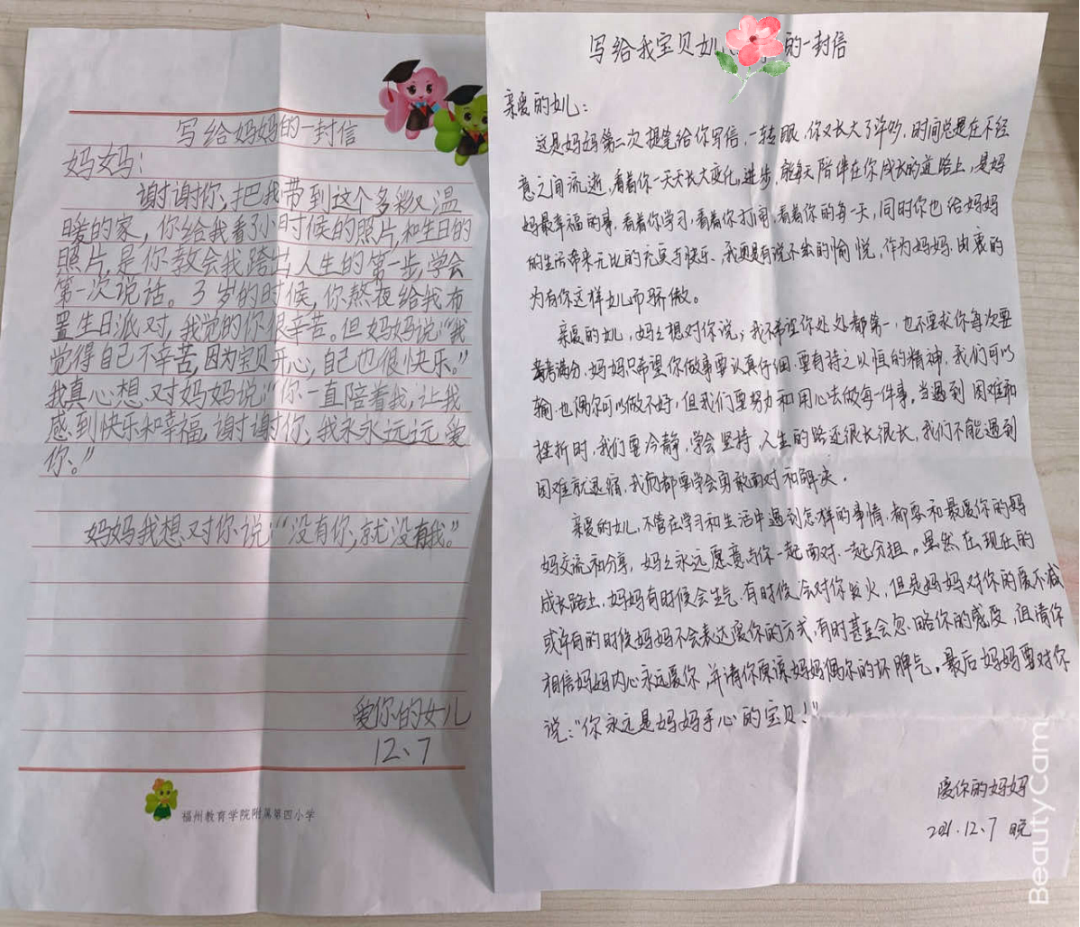 写给妈妈的一封信
妈妈：
谢谢你，把我带到这个多彩又温
暖的家，你给我看了小时候的照片，和生日的
照片，是你教会我跨出人生的第一步，学会
第一次说话。3岁的时候，你熬夜给我布
置生日派对，我觉的你很辛苦。但妈妈说：“我
觉得自己不辛苦，因为宝贝开心，自己也很快乐。”
我真心想对妈妈说：“你一直陪着我，让我
感到快乐和幸福，谢谢你，我永永远远爱
你。”
妈妈我想对你说：“没有你，就没有我。”
爱你的女儿
12、7
福州教育学院附属第四小学
写给我宝贝女的一封信
亲爱的女儿：
这是妈妈第二次提笔给你写信，一转眼，你又长大了许多，时间总是在不经
意之间流逝，看着你一天天长大变化，进步，能每天陪伴在你成长的道路上，是妈
妈最幸福的事，看着你学习，看着你打闹，看着你的每一天，同时你也给妈妈
的生活带来无比的充实与快乐，我更是有说不出的愉悦，作为妈妈，由衷的
为有你这样女儿而骄傲。
亲爱的女儿，妈妈想对你说，我不希望你处处都第一，也不要求你每次要
考满分，妈妈只希望你做事要认真仔细，要有持之以恒的精神，我们可以
输，也偶尔可以做不好，但我们要努力和用心去做每一件事。当遇到困难和
挫折时，我们要冷静，学会坚持，人生的路还很长很长，我们不能遇到
困难就退缩，我们都要学会勇敢面对和解决。
亲爱的女儿，不管在学习和生活中遇到怎样的事情，都要和最爱你的妈
妈交流和分享，妈妈永远愿意与你一起面对，一起分担。虽然在现在的
成长路上，妈妈有时候会生气，有时候会对你发火，但是妈妈对你的爱不减
或许有的时候妈妈不会表达爱你的方式，有时甚至会忽略你的感受，但请你
相信妈妈内心永远爱你，并请你原谅妈妈偶尔的坏脾气。最后妈妈要对你
说：“你永远是妈妈手心的宝贝！”
爱你的妈妈
2021.12.7 晚
BeautyCam